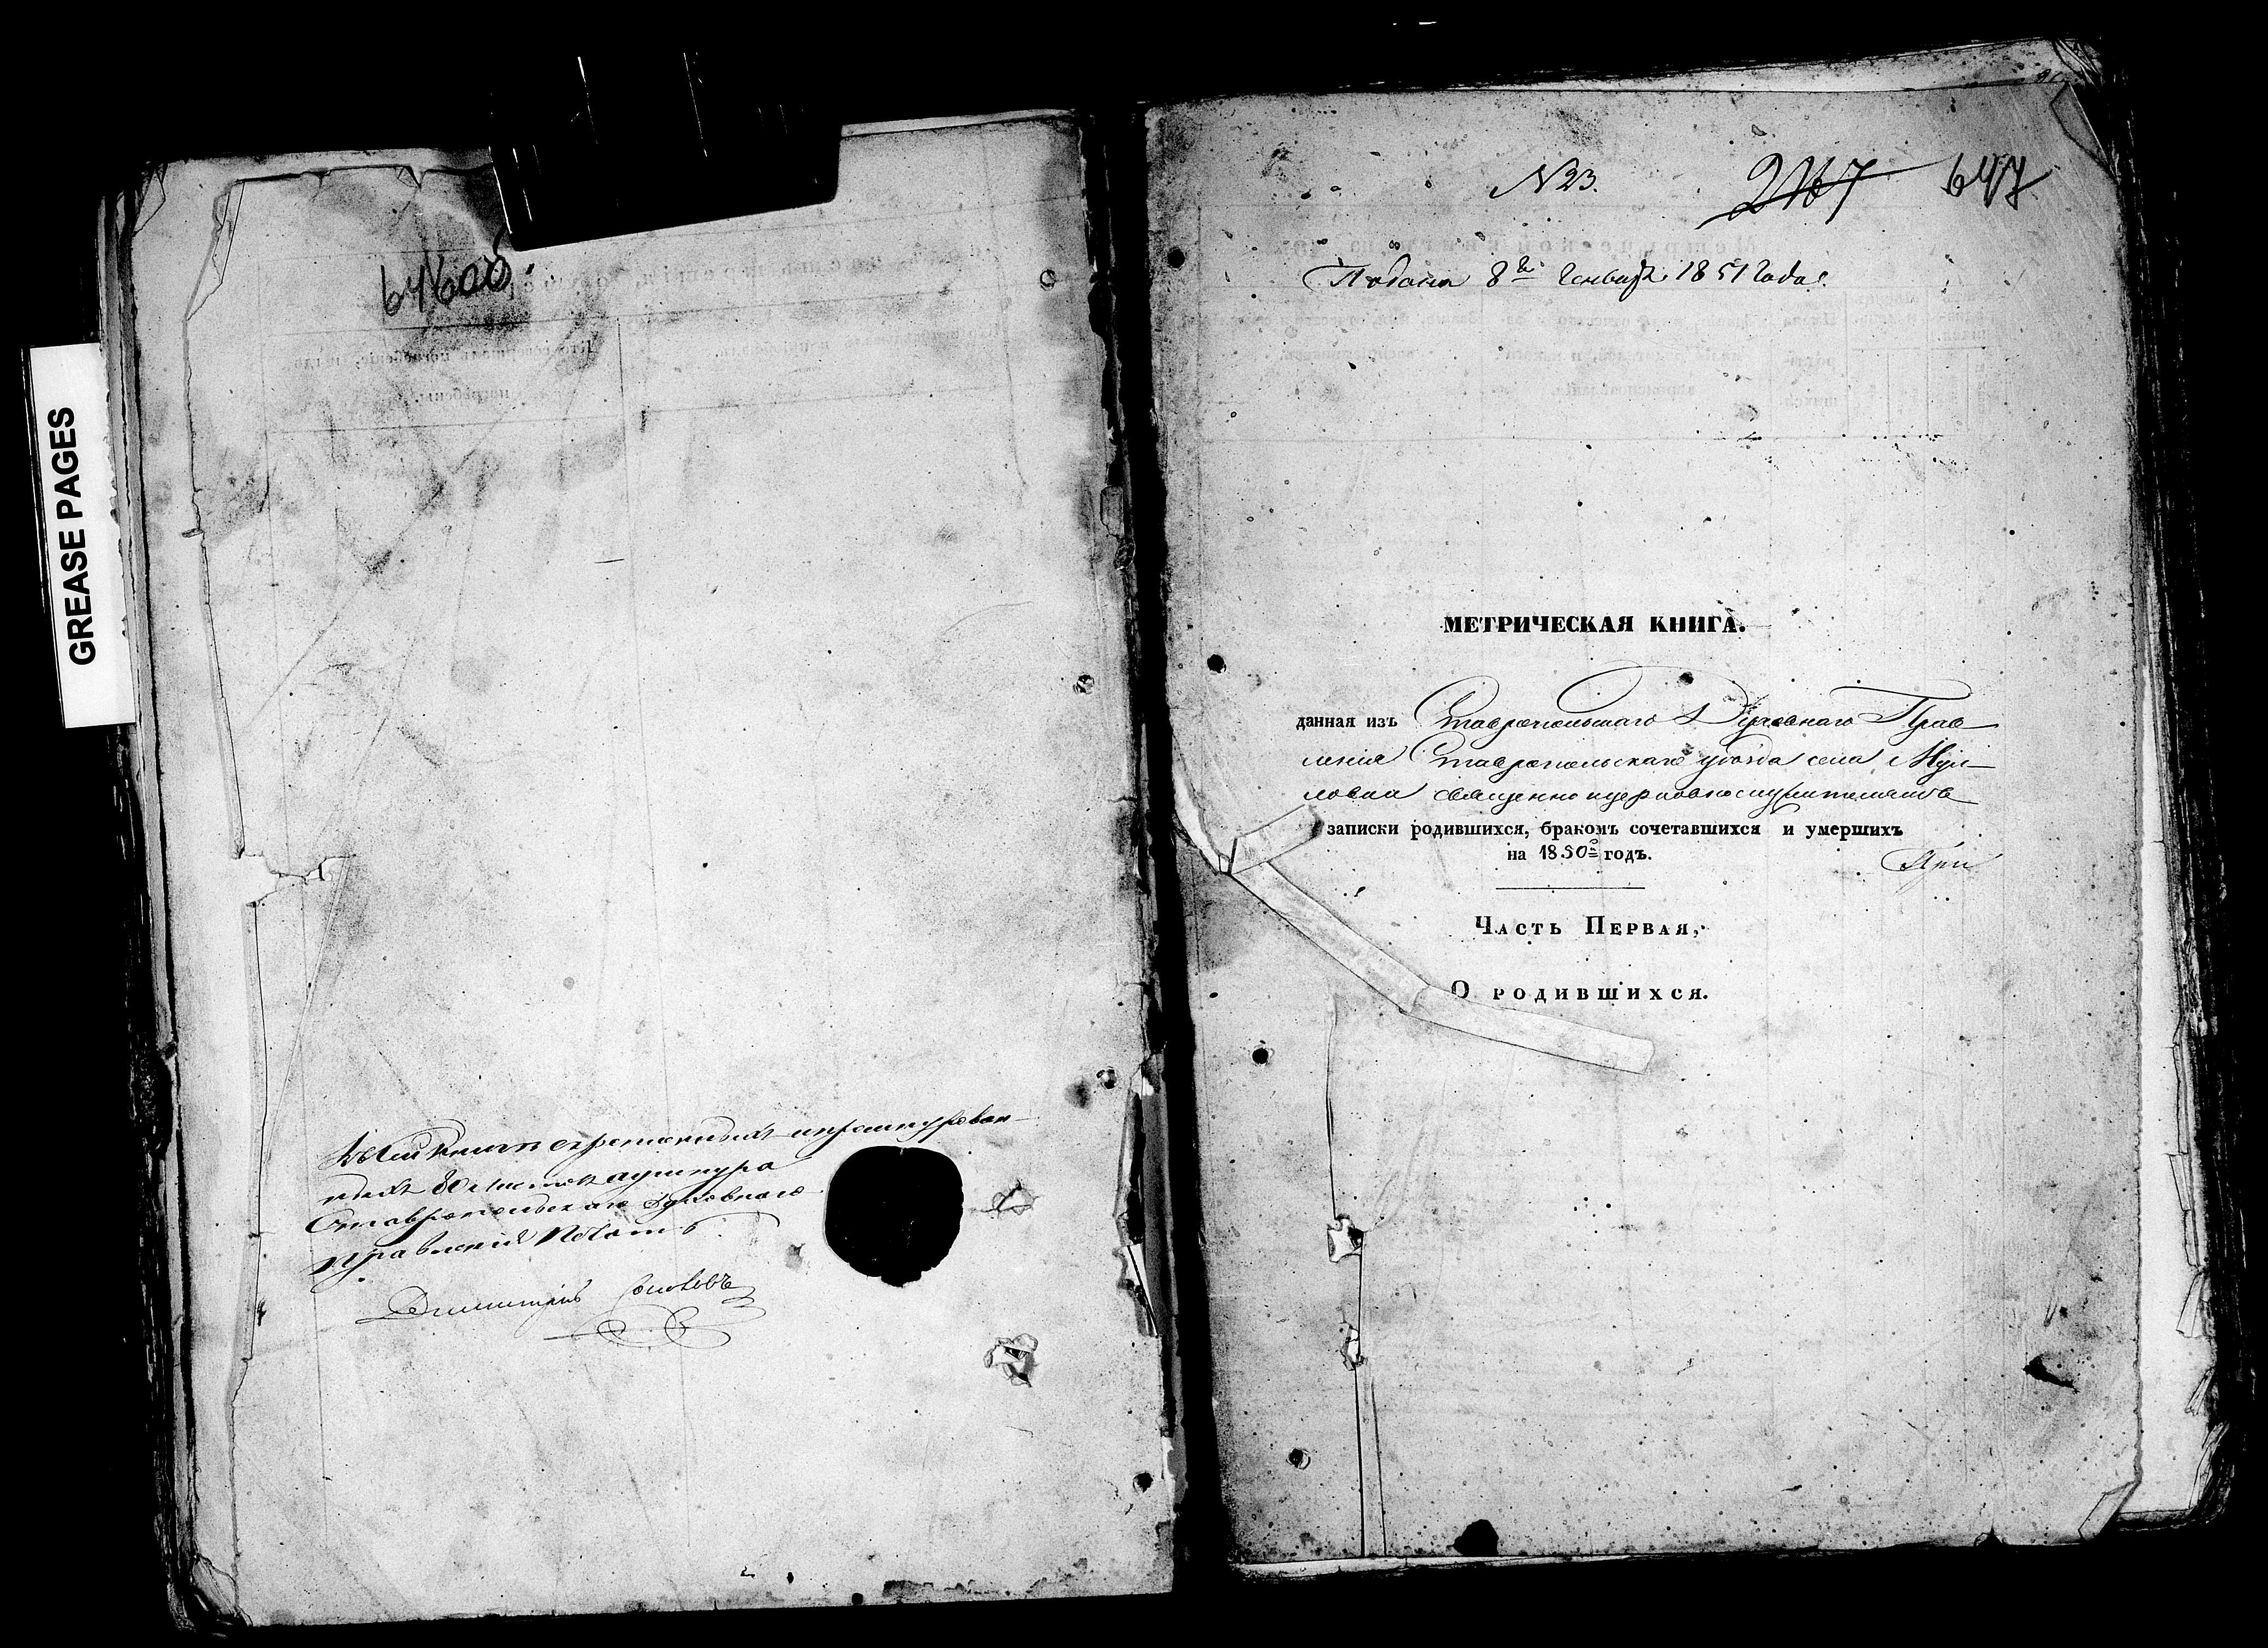 GREASE PAGES
646 об.
Въ сей книгѣ скрѣпленныхъ и прошнурован-
ныхъ 80 листовъ а у шнура
Ставропольскаго духовнаго
правленія печать.
Димитрій
N 23.
247 647
Подана 8го Генваря 1851 года.
МЕТРИЧЕСКАЯ КНИГА.
данная изъ Ставропольскаго Духовнаго Прав
ленія Ставропольскаго уѣзда села Мул
ловка священно и церковнослужителямъ
записки родившихся, бракомъ сочетавшихся и умершихъ
на 1850й годъ.
ЧАСТЬ ПЕРВАЯ,
О РОДИВШИХСЯ.